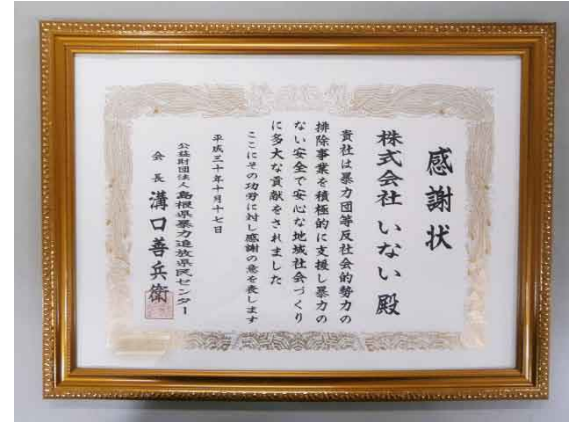 感謝状
株式会社 いない 殿
貴社は暴力団等反社会的勢力の
排除事業を積極的に支援し暴力の
ない安全で安心な地域社会づくり
に多大な貢献をされました
ここにその功労に対し感謝の意を表します
平成三十年十月十七日
公益財団法人 島根県暴力追放県民センター
会長 溝口善兵衛